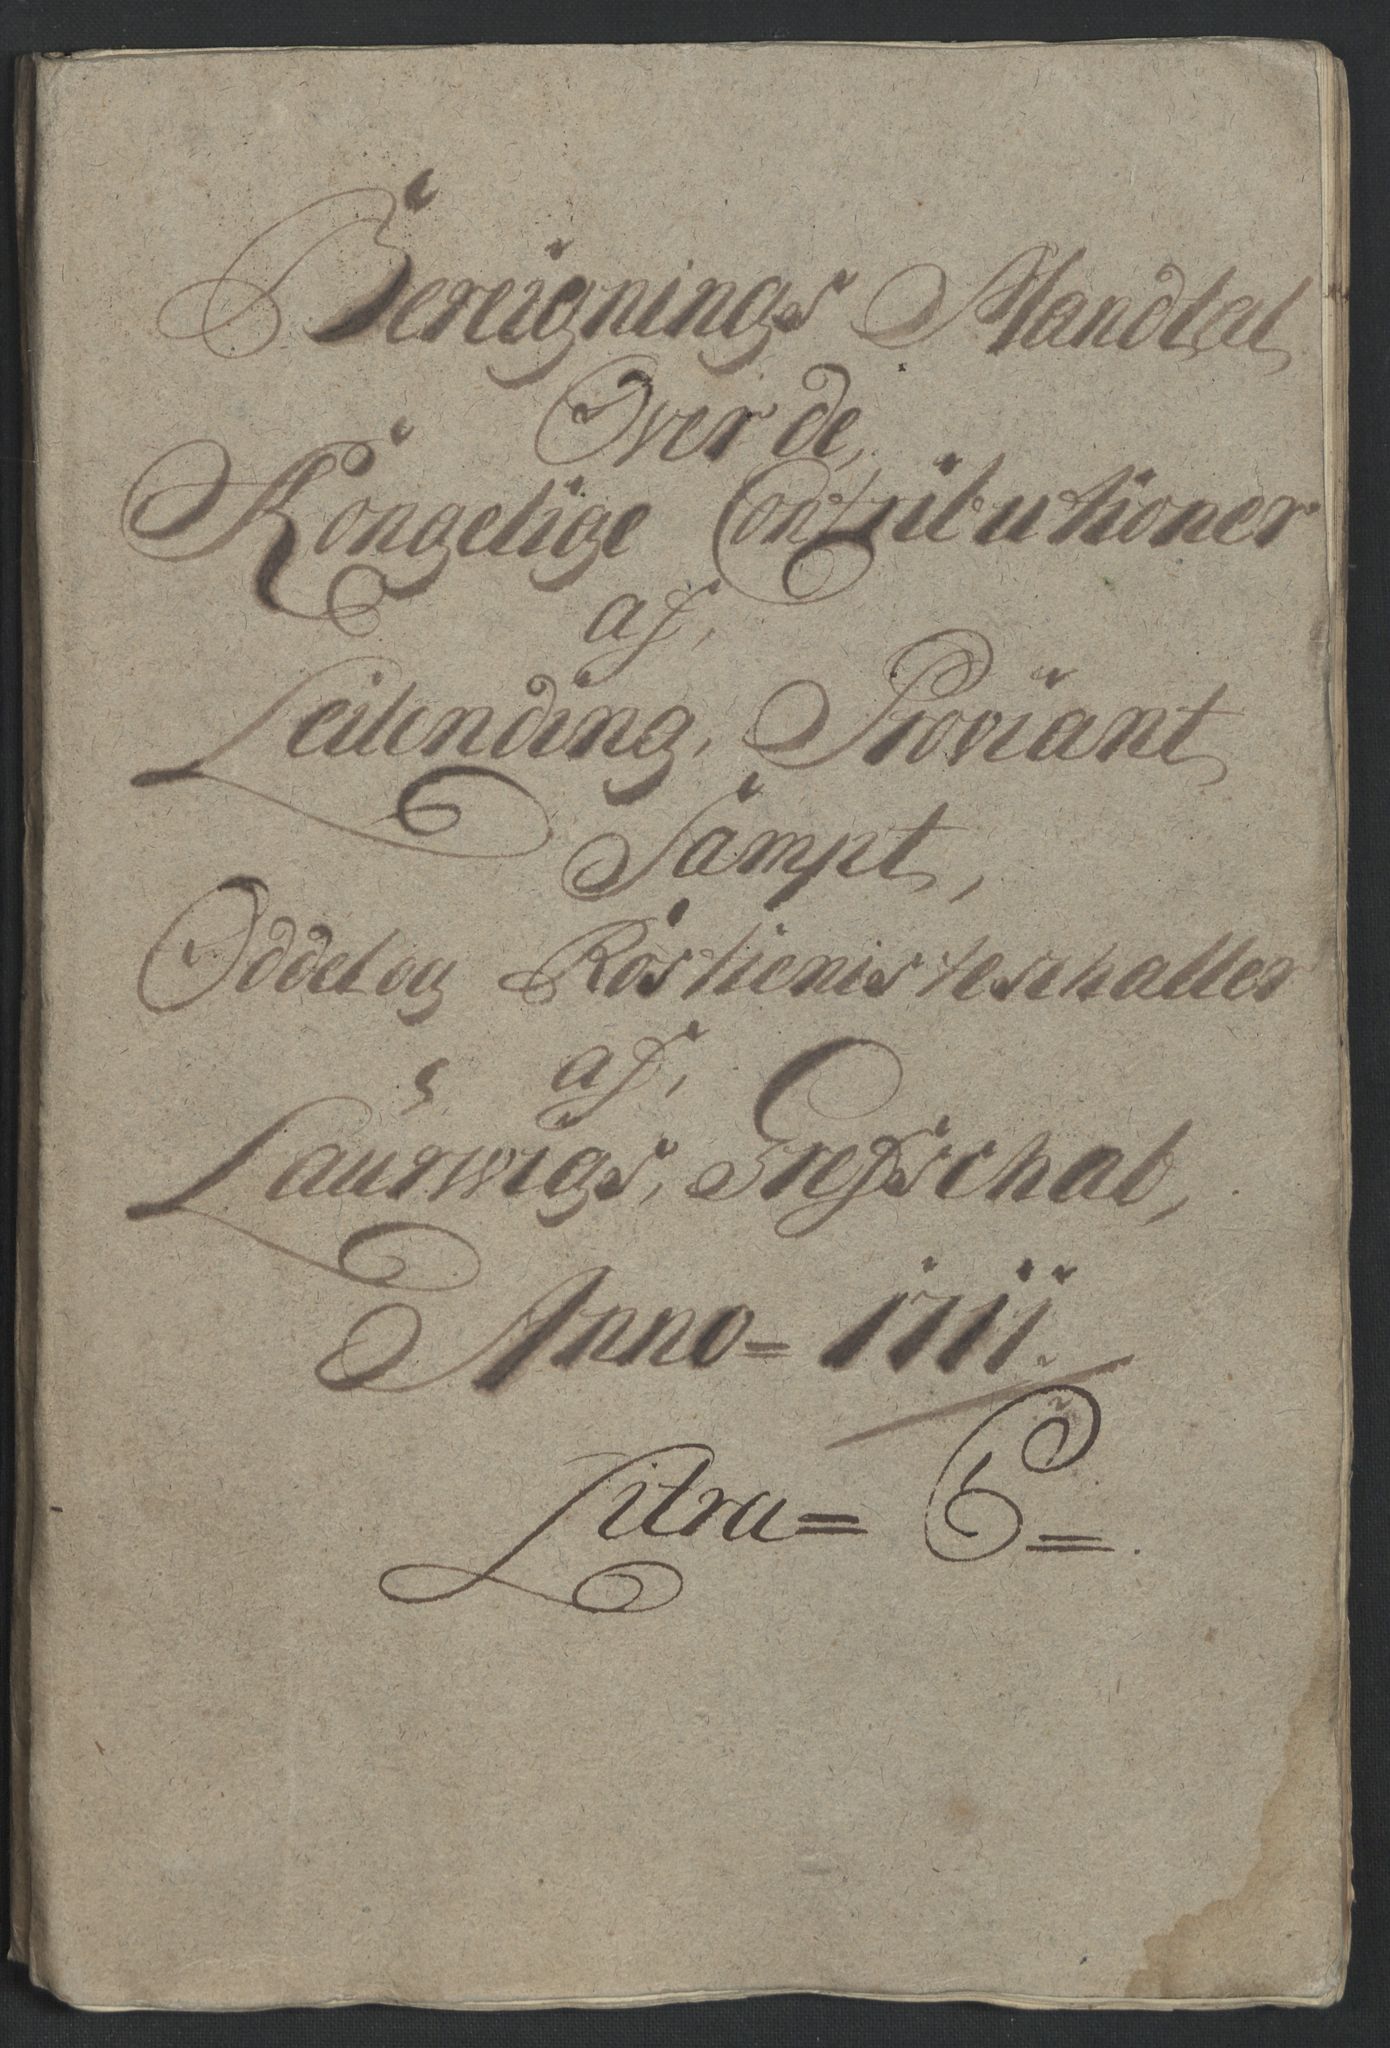 Bereignings Mandtal
Over de,
Kongelige Contributioner
af,
Leilending, Proviant
Sampt,
Oddel og Rostienisteschatter
af,
Laurwigs, Grefschab,
Anno = 1711.
Litra = C =.